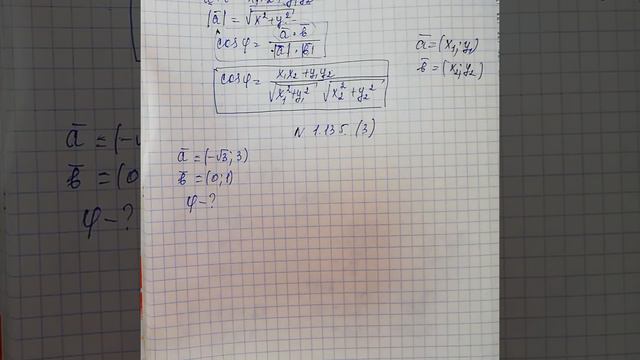 |ā| = √x²+y²
cos φ = ā · b̄ / |ā| · |b̄|
ā = (x₁; y₁)
b̄ = (x₂; y₂)
cos φ = x₁x₂ + y₁y₂ / √x₁²+y₁² √x₂²+y₂²
N 1.135. (3)
ā = (-√3; 3)
b̄ = (0; 1)
φ - ?